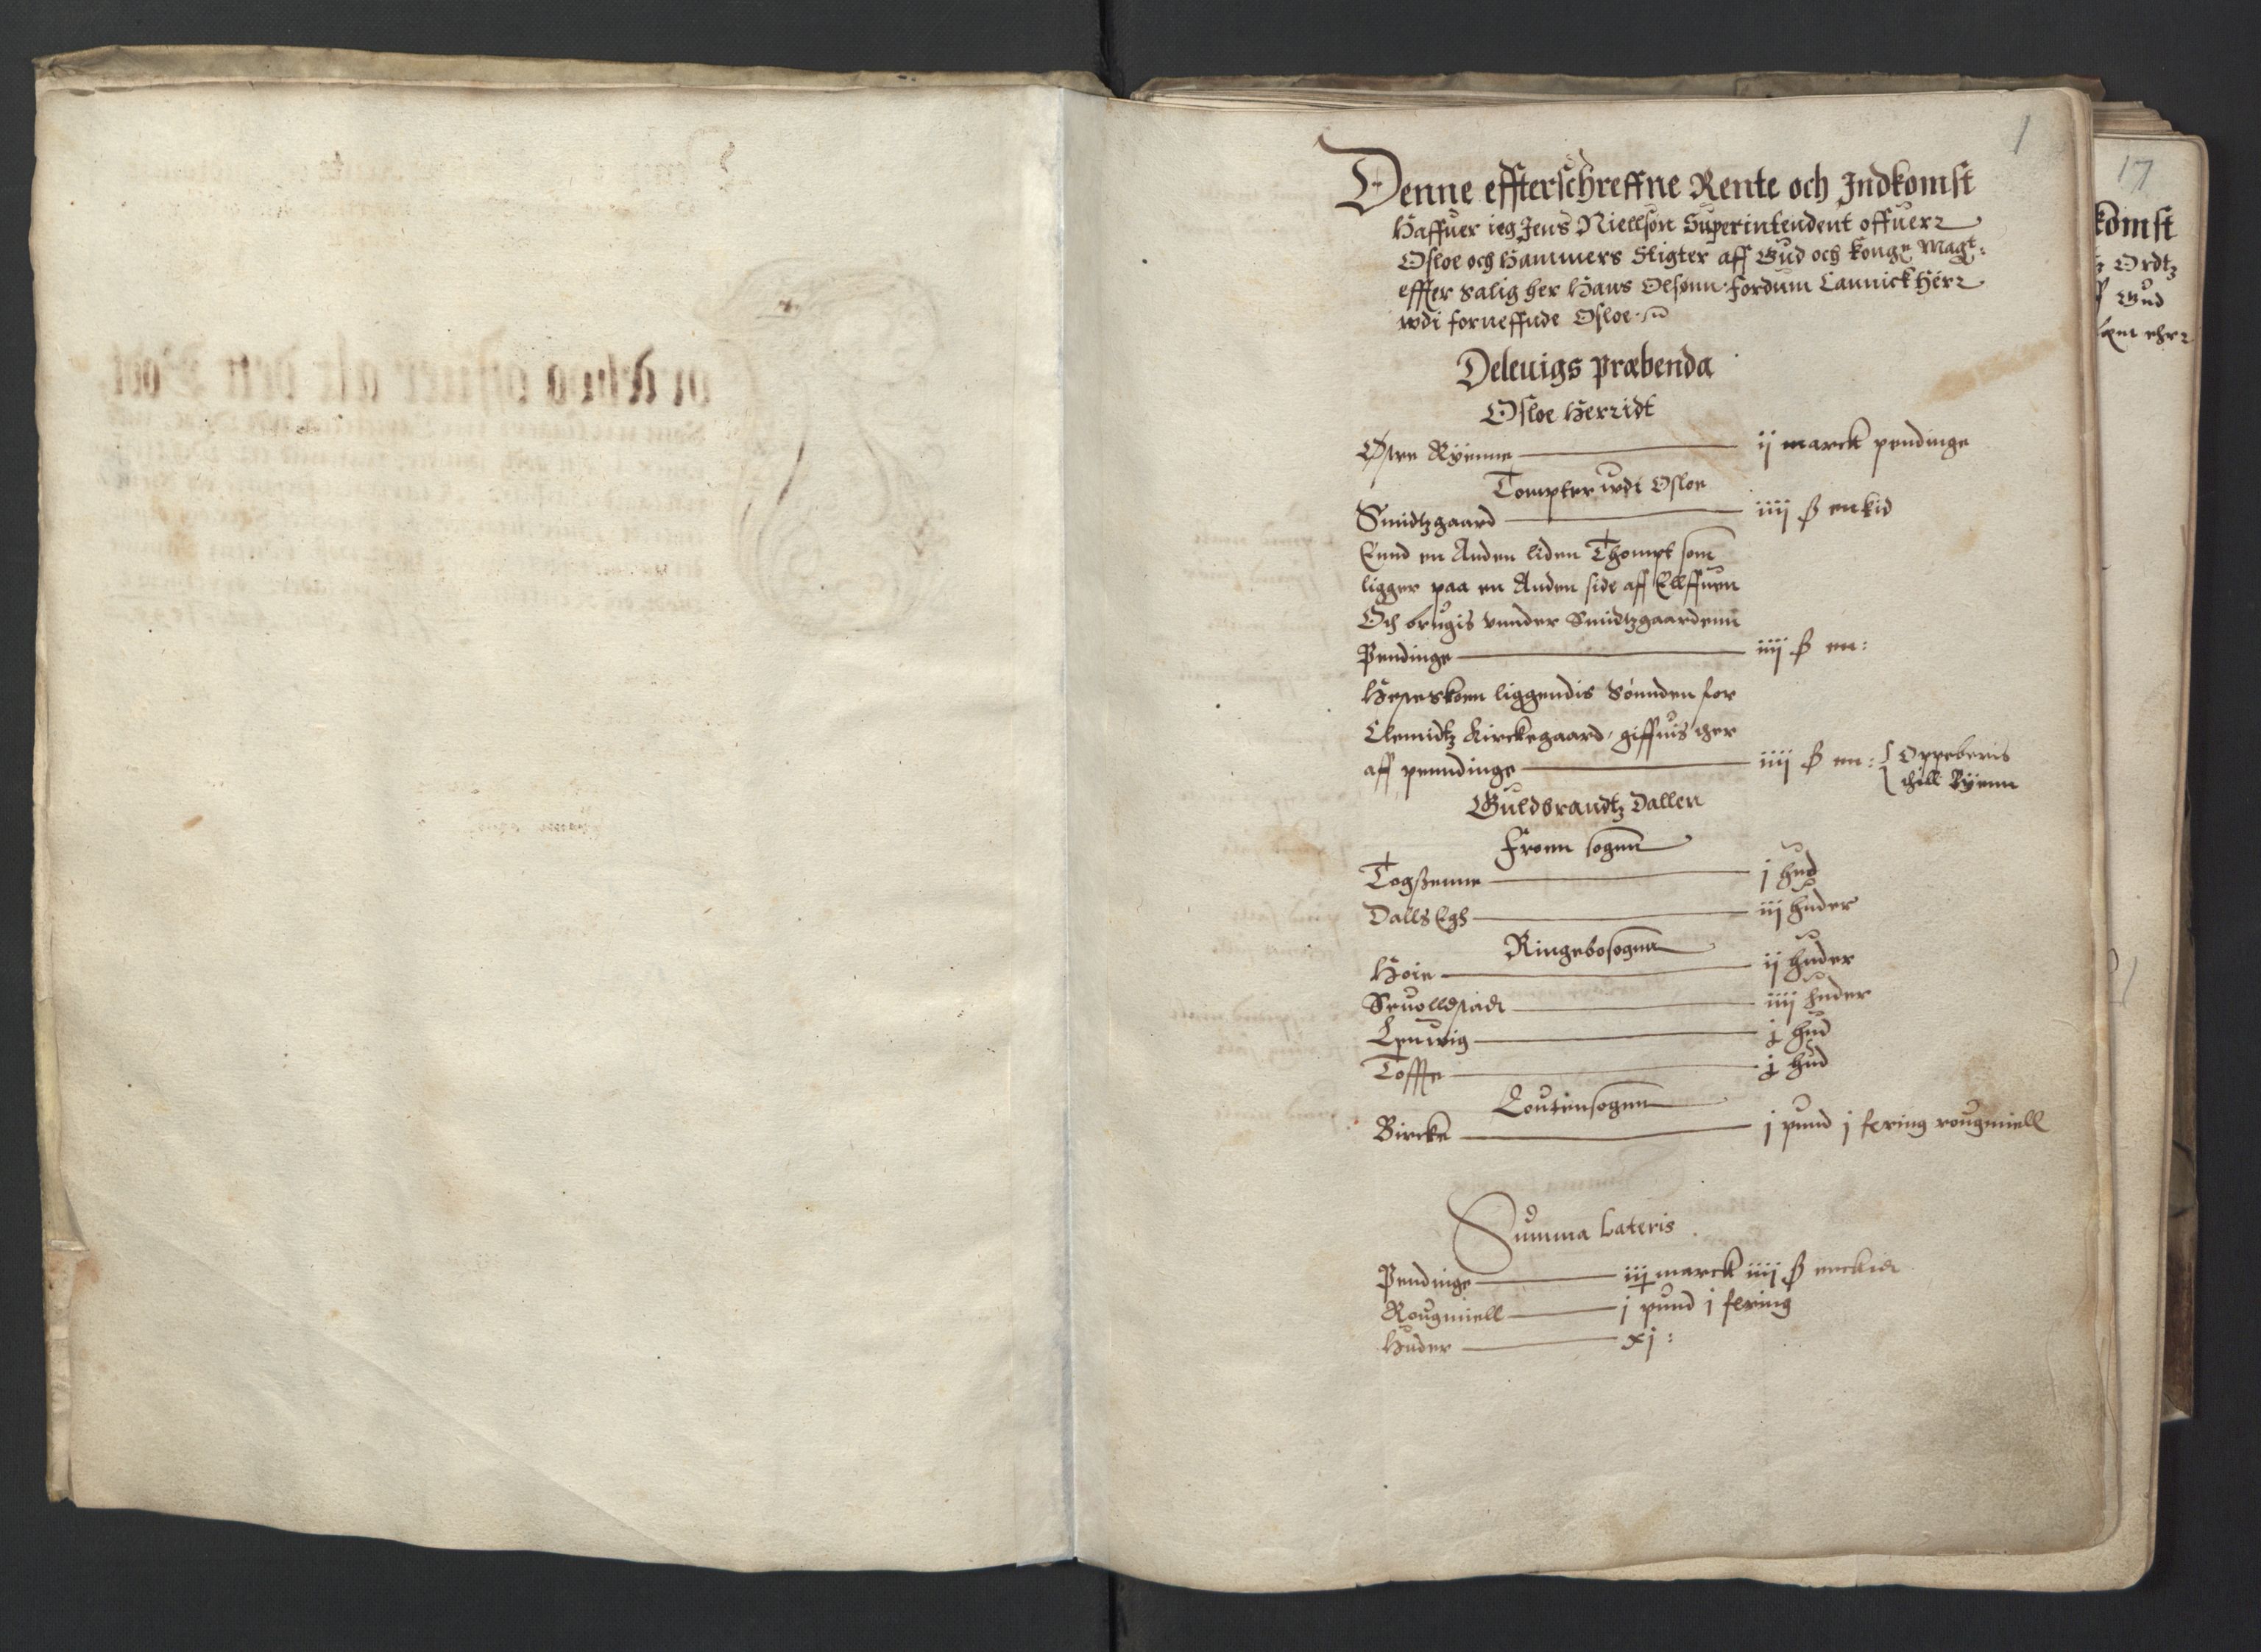 1
Denne effterschreffne Rente och Indkomst
Haffuer ieg Jens Niellsøn Superintendent offuer
Osloe och Hammers Stigter aff Gud och Konge Magt:
effter Salig her Hans Olsønn fordum Cannick Herr
wdi forneffnde Osloe
Deleuigs Præbenda
Osloe Herridt
Østre Ryenne ij marck pendinge
Tompter wdi Osloe
Smidtzgaard iiij ß enkid
Ennd en Anden liden Thompt som
ligger paa en Anden side aff Ellffuen
Och brugis vnnder Smidtzgaardenn
Pendinge iiij ß en:
liggendis Sønnden for
Clemidtz Kirckegaard, giffuis ther
aff penndinge iiij ß en: Oppeberis
thill Ryenn
Guldbrandtz Dallen
Froen sogenn
Togßenne j hud
Dalls Egh iij huder
Ringebosogen
Hoie ij huder
iiij huder
j hud
Tofffte j hud
Loutensogen
Bircke j pund j fering rougmiell
Summa Lateris
Pendinge iij marck iiij ß enckid
Rougmiell j pund j fering
Huder xj:
17
komst
Ordtz
Gud